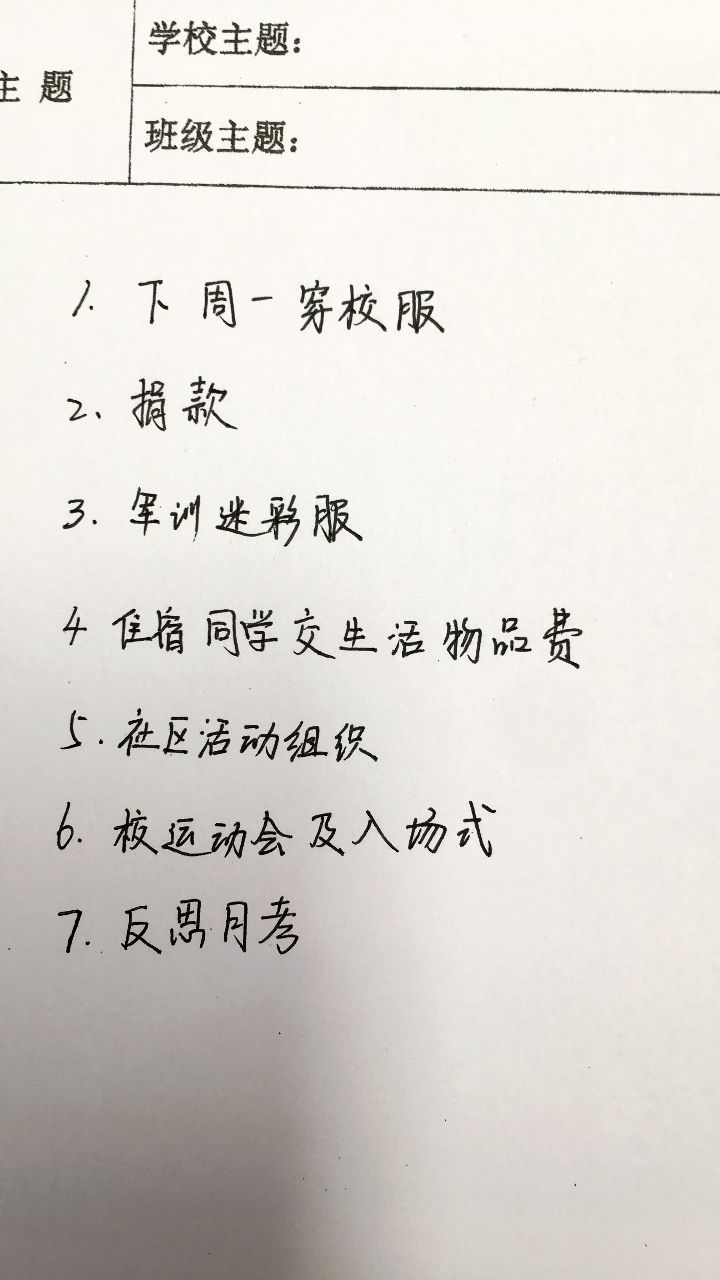 学校主题：
主 题
班级主题：
1. 下周一穿校服
2、捐款
3. 军训迷彩服
4 住宿同学交生活物品费
5. 社区活动组织
6. 校运动会及入场式
7. 反思月考